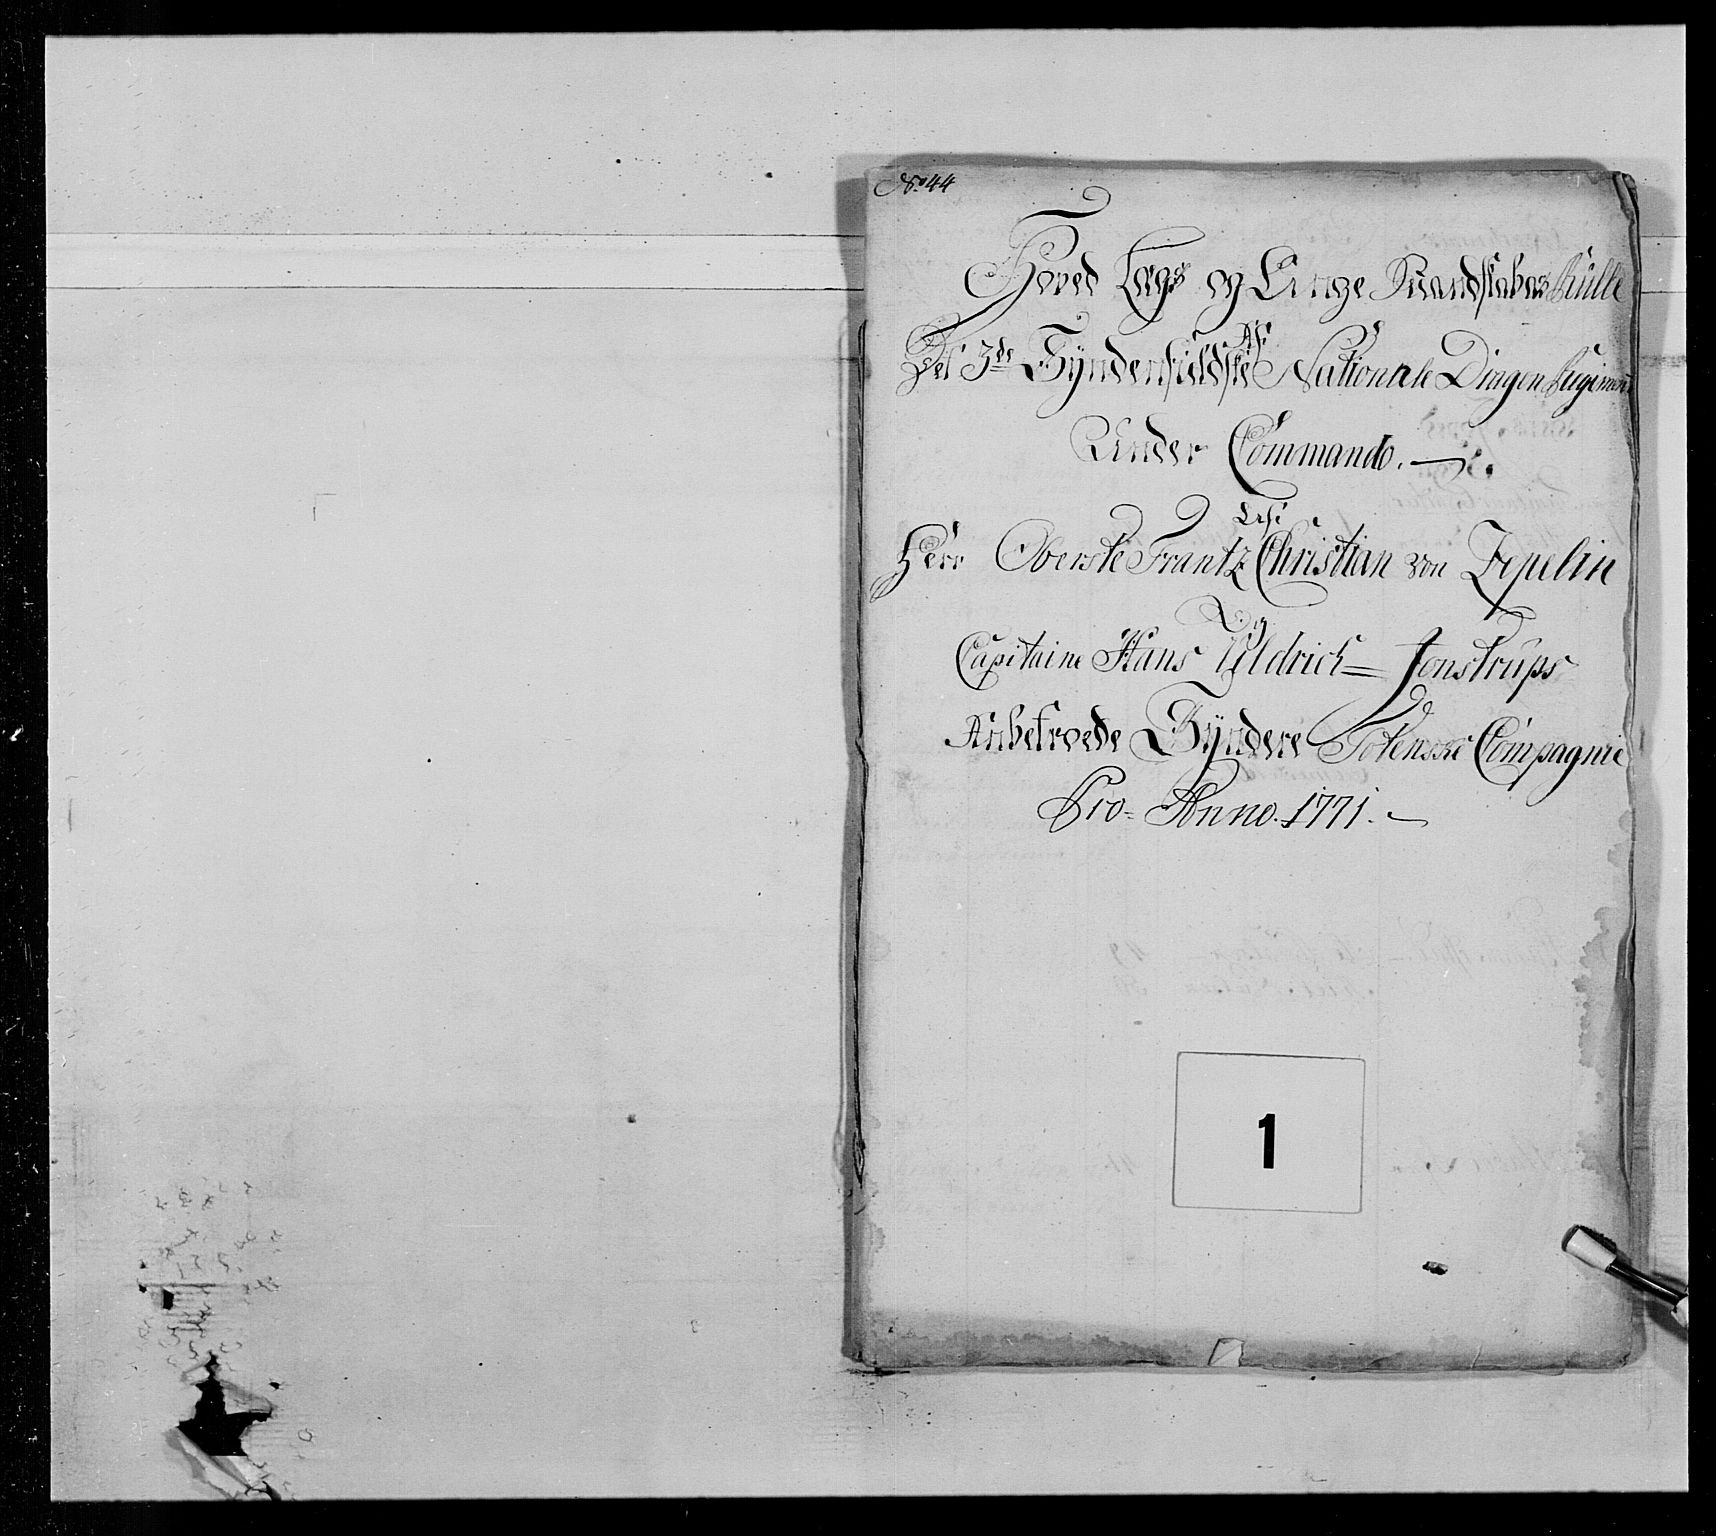 No 44
Hoved Lægs og Unge Mandskabs Rulle
Af
Det 3de Syndenfieldske Nationale Dragon Regiment
Under Commando.
Af
Herr Oberste Frantz Christian von Zepelin
Og
Capitaine Hans Uldrich Jonstrups
Anbetroede Syndere Totenske Compagnie
Pro Anno. 1771.
1